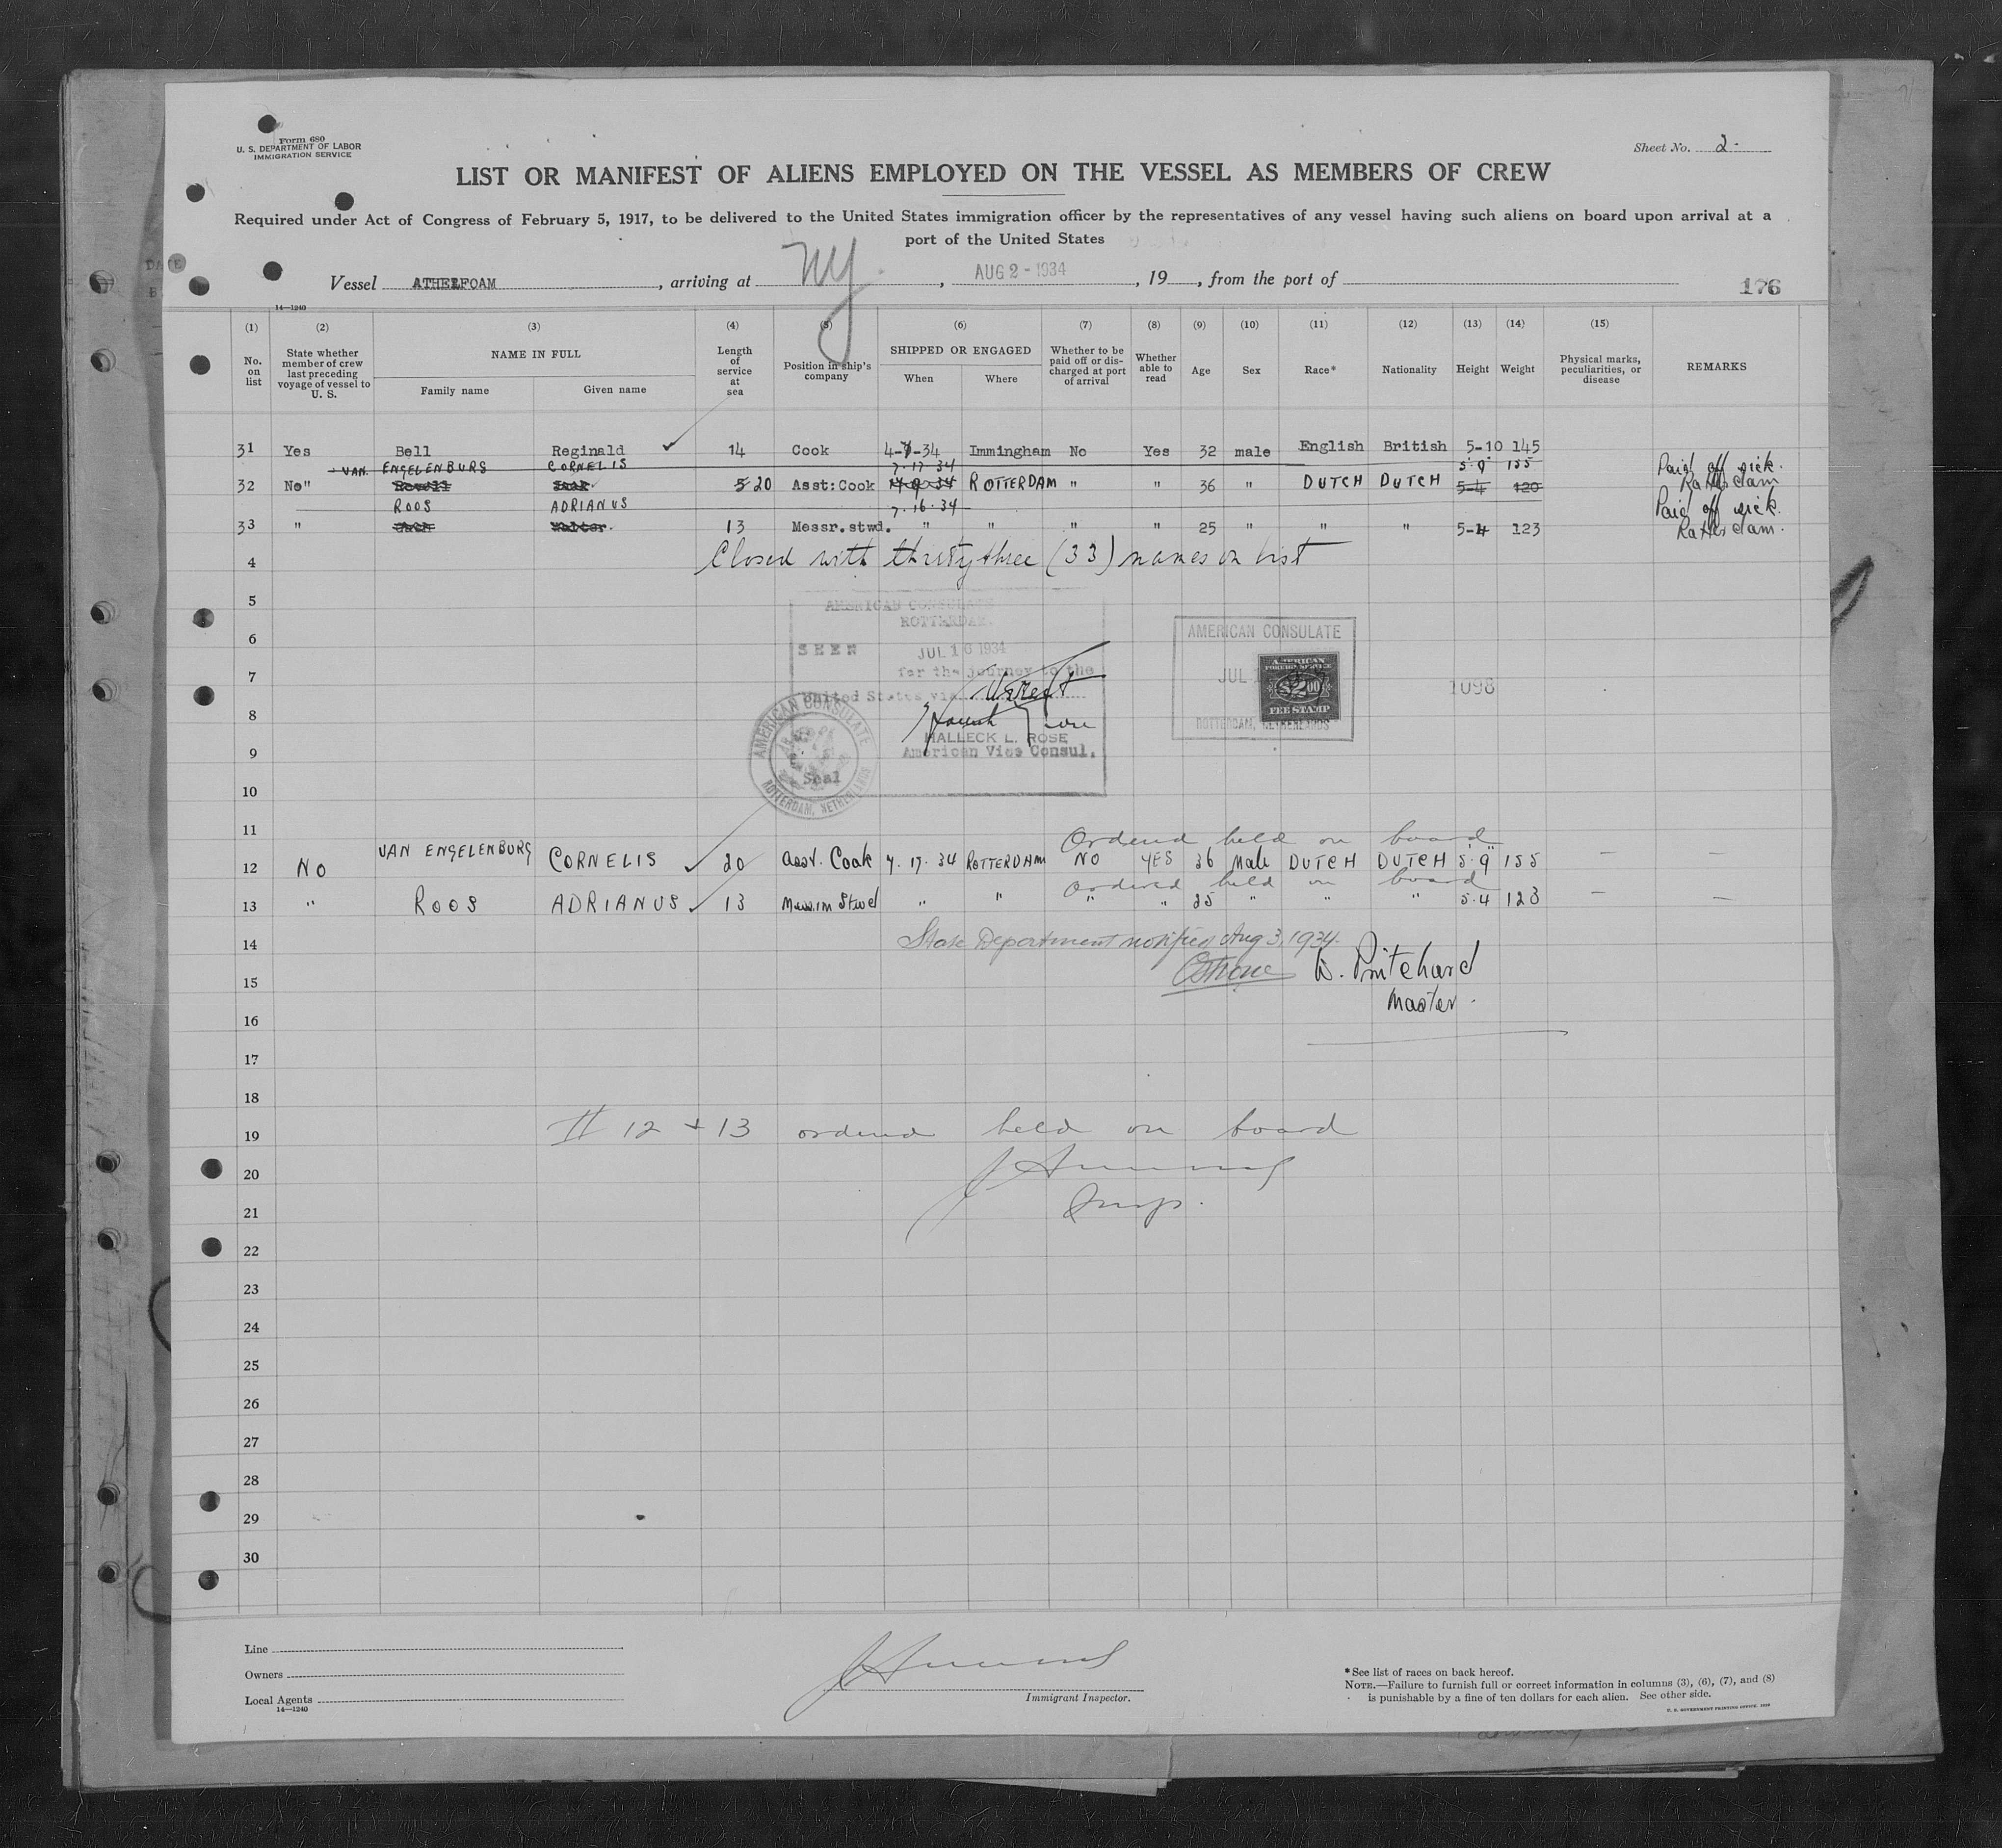 Form 680
U. S. DEPARTMENT OF LABOR
IMMIGRATION SERVICE
Sheet No. 2.
LIST OR MANIFEST OF ALIENS EMPLOYED ON THE VESSEL AS MEMBERS OF CREW
Required under Act of Congress of February 5, 1917, to be delivered to the United States immigration officer by the representatives of any vessel having such aliens on board upon arrival at a
port of the United States
Vessel ATHELFOAM, arriving at NY, AUG 2 - 1934, 19, from the port of
176
14—1240
(1) (2) (3) (4) (5) (6) (7) (8) (9) (10) (11) (12) (13) (14) (15)
No. on list
State whether member of crew last preceding voyage of vessel to U. S.
NAME IN FULL
Family name
Given name
Length of service at sea
Position in ship's company
SHIPPED OR ENGAGED
When
Where
Whether to be paid off or discharged at port of arrival
Whether able to read
Age
Sex
Race*
Nationality
Height
Weight
Physical marks, peculiarities, or disease
REMARKS
31 Yes Bell Reginald 14 Cook 4-7-34 Immingham No Yes 32 male English British 5-10 145
VAN ENGELENBURG CORNELIS 7.17.34 5.9" 155 Paid off sick.
32 No" 5 20 Asst:Cook ROTTERDAM " " 36 " DUTCH DUTCH 5-4 120 Rotterdam
ROOS ADRIANUS 7.16.34 Paid off sick.
33 " Walter. 13 Messr.stwd. " " " " 25 " " " 5-4 123 Rotterdam.
Closed with thirty three (33) names on list
4
5
6
7
8
9
10
11
AMERICAN CONSULATE
ROTTERDAM.
SEEN JUL 16 1934
for the journey to the
United States via
HALLECK L. ROSE
American Vice Consul.
AMERICAN CONSULATE
ROTTERDAM, NETHERLANDS
Seal
AMERICAN CONSULATE
JUL 1
AMERICAN
FOREIGN SERVICE
$2.00
FEE STAMP
ROTTERDAM, NETHERLANDS
1098
Ordered held on board
12 No VAN ENGELENBURG CORNELIS 20 asst. Cook 7.17.34 ROTTERDAM NO YES 36 Male DUTCH DUTCH 5.9" 155 — —
Ordered held on board
13 " ROOS ADRIANUS 13 Messrm Stwd " " " " 25 " " " 5.4 123 — —
14 State Department notified Aug 3, 1934.
15 W. Pritchard
Master.
16
17
18
19 # 12 + 13 ordered held on board
20
21 Insp.
22
23
24
25
26
27
28
29
30
Line
Owners
Local Agents
14—1240
Immigrant Inspector.
*See list of races on back hereof.
NOTE.—Failure to furnish full or correct information in columns (3), (6), (7), and (8)
is punishable by a fine of ten dollars for each alien. See other side.